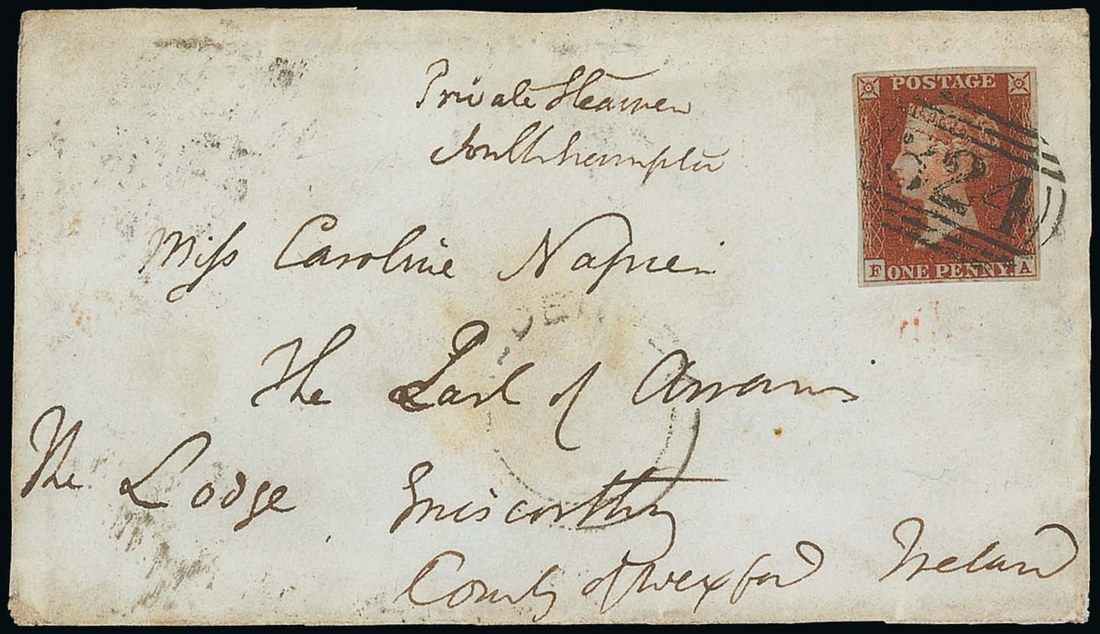 Private Steamer
Southampton
POSTAGE
224
F ONE PENNY A
Miss Caroline Napier
The Earl of Arran's
The Lodge Eniscorthy
County of Wexford Ireland